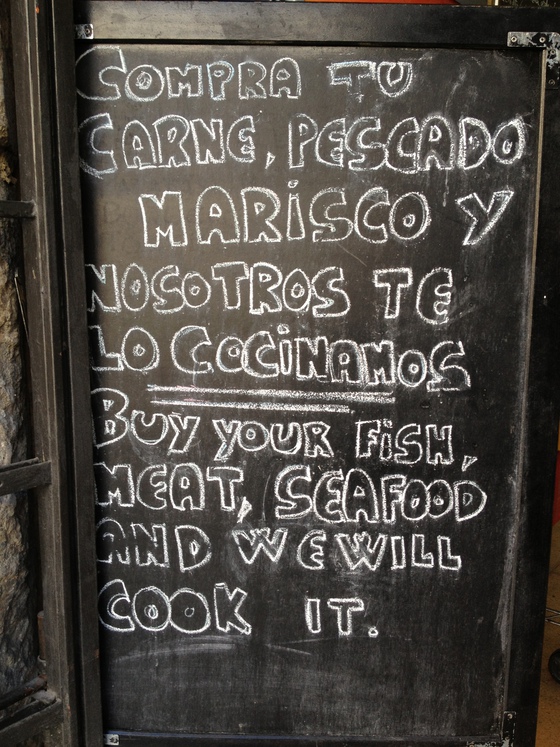 COMPRA TU
CARNE, PESCADO
MARiSCO Y
NOSOTROS TE
LO COCiNAMOS
BUY YOUR FiSH,
MEAT, SEAFOOD
AND WE WILL
COOK IT.